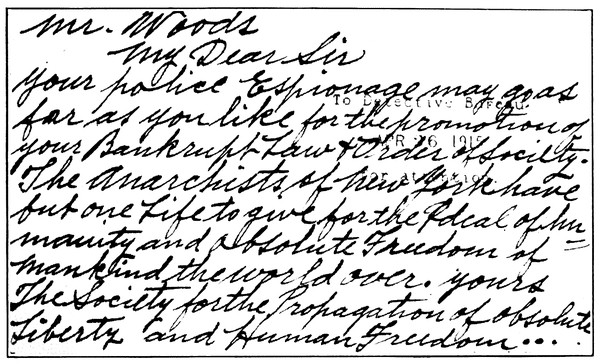 Mr. Woods
My Dear Sir
Your police Espionage may go as
To Detective Bureau.
far as you like for the promotion of
your Bankrupt Law & Order of Society.
For attention.
The Anarchists of New York have
but one Life to give for the Ideal of hu=
manity and absolute Freedom of
mankind the world over. yours
The Society for the Propagation of absolute
Liberty and Human Freedom....